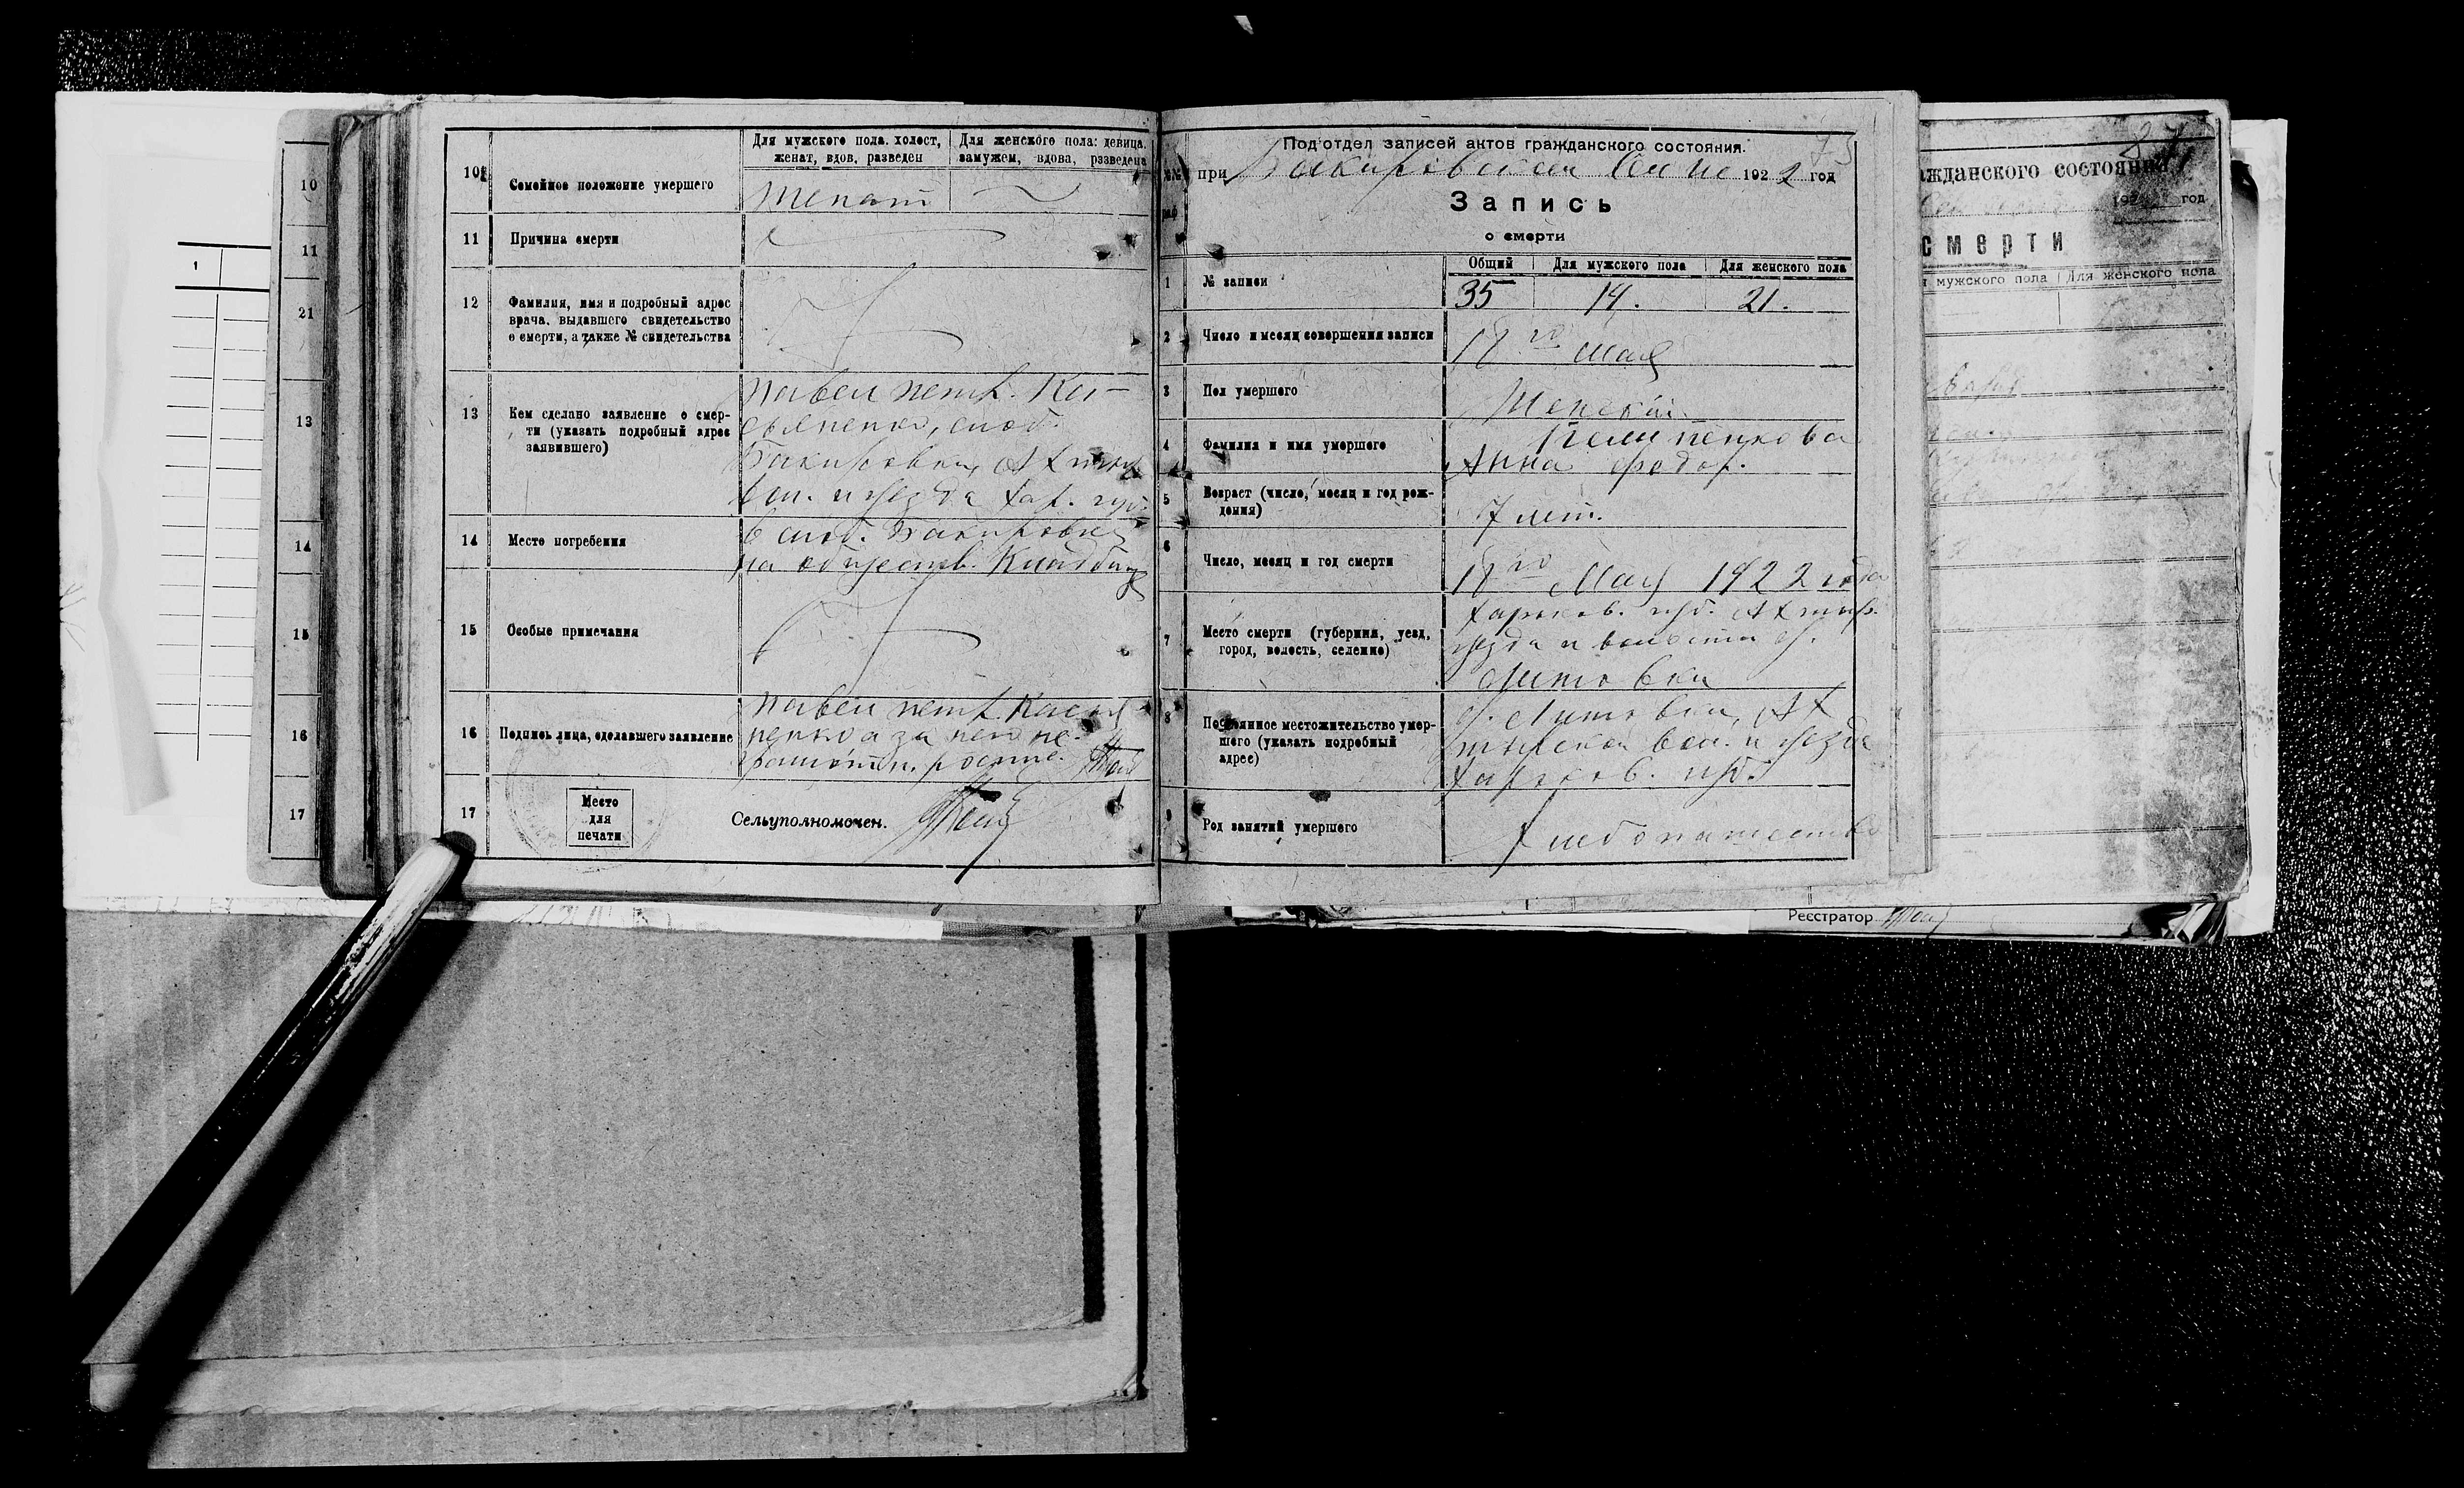 10
11
21
13
14
15
16
17
1
10
Семейное положение умершего
Для мужского пола. холост, женат, вдов, разведен
Для женского пола: девица, замужем, вдова, разведена
Женат
11 Причина смерти
12 Фамилия, имя и подробный адрес
врача, выдавшего свидетельство
о смерти, а также № свидетельства
13 Кем сделано заявление о смер-
ти (указать подробный адрес
заявившего)
Павел Петр. Ка-
сьяненко, слоб.
Бакировки, Ахтыр
вол. и уезда Хар. губ.
14 Место погребения
В слоб. Бакировке
на обществ. Кладбищ
15 Особые примечания
16 Подпись лица, сделавшего заявление
Павел Петр. Касья
ненко а за него не-
грамотн. роспис.
17
Место
для
печати
Сельуполномочен.
73
Под'отдел записей актов гражданского состояния.
при Бакировском 1922 год
Запись
о смерти
Общий Для мужского пола Для женского пола
1 № записи 35 14. 21.
2 Число и месяц совершения записи 18го Мая
3 Пол умершего Женский
4 Фамилия и имя умершего
Анна Федор.
5 Возраст (число, месяц и год рож-
дения)
7 лет.
6 Число, месяц и год смерти 18го Мая 1922 года
7 Место смерти (губерния, уезд,
город, волость, селение)
Харьков. губ. Ахтыр.
уезда и волости д.
Литовки
8 Постоянное местожительство умер-
шего (указать подробный
адрес)
д. Литовки, Ах
тырской вол. и уезда
Харьков. губ.
9 Род занятий умершего Хлебопашество
87
ажданского состояния
192 год
смерти
мужского пола Для женского пола
Реєстратор